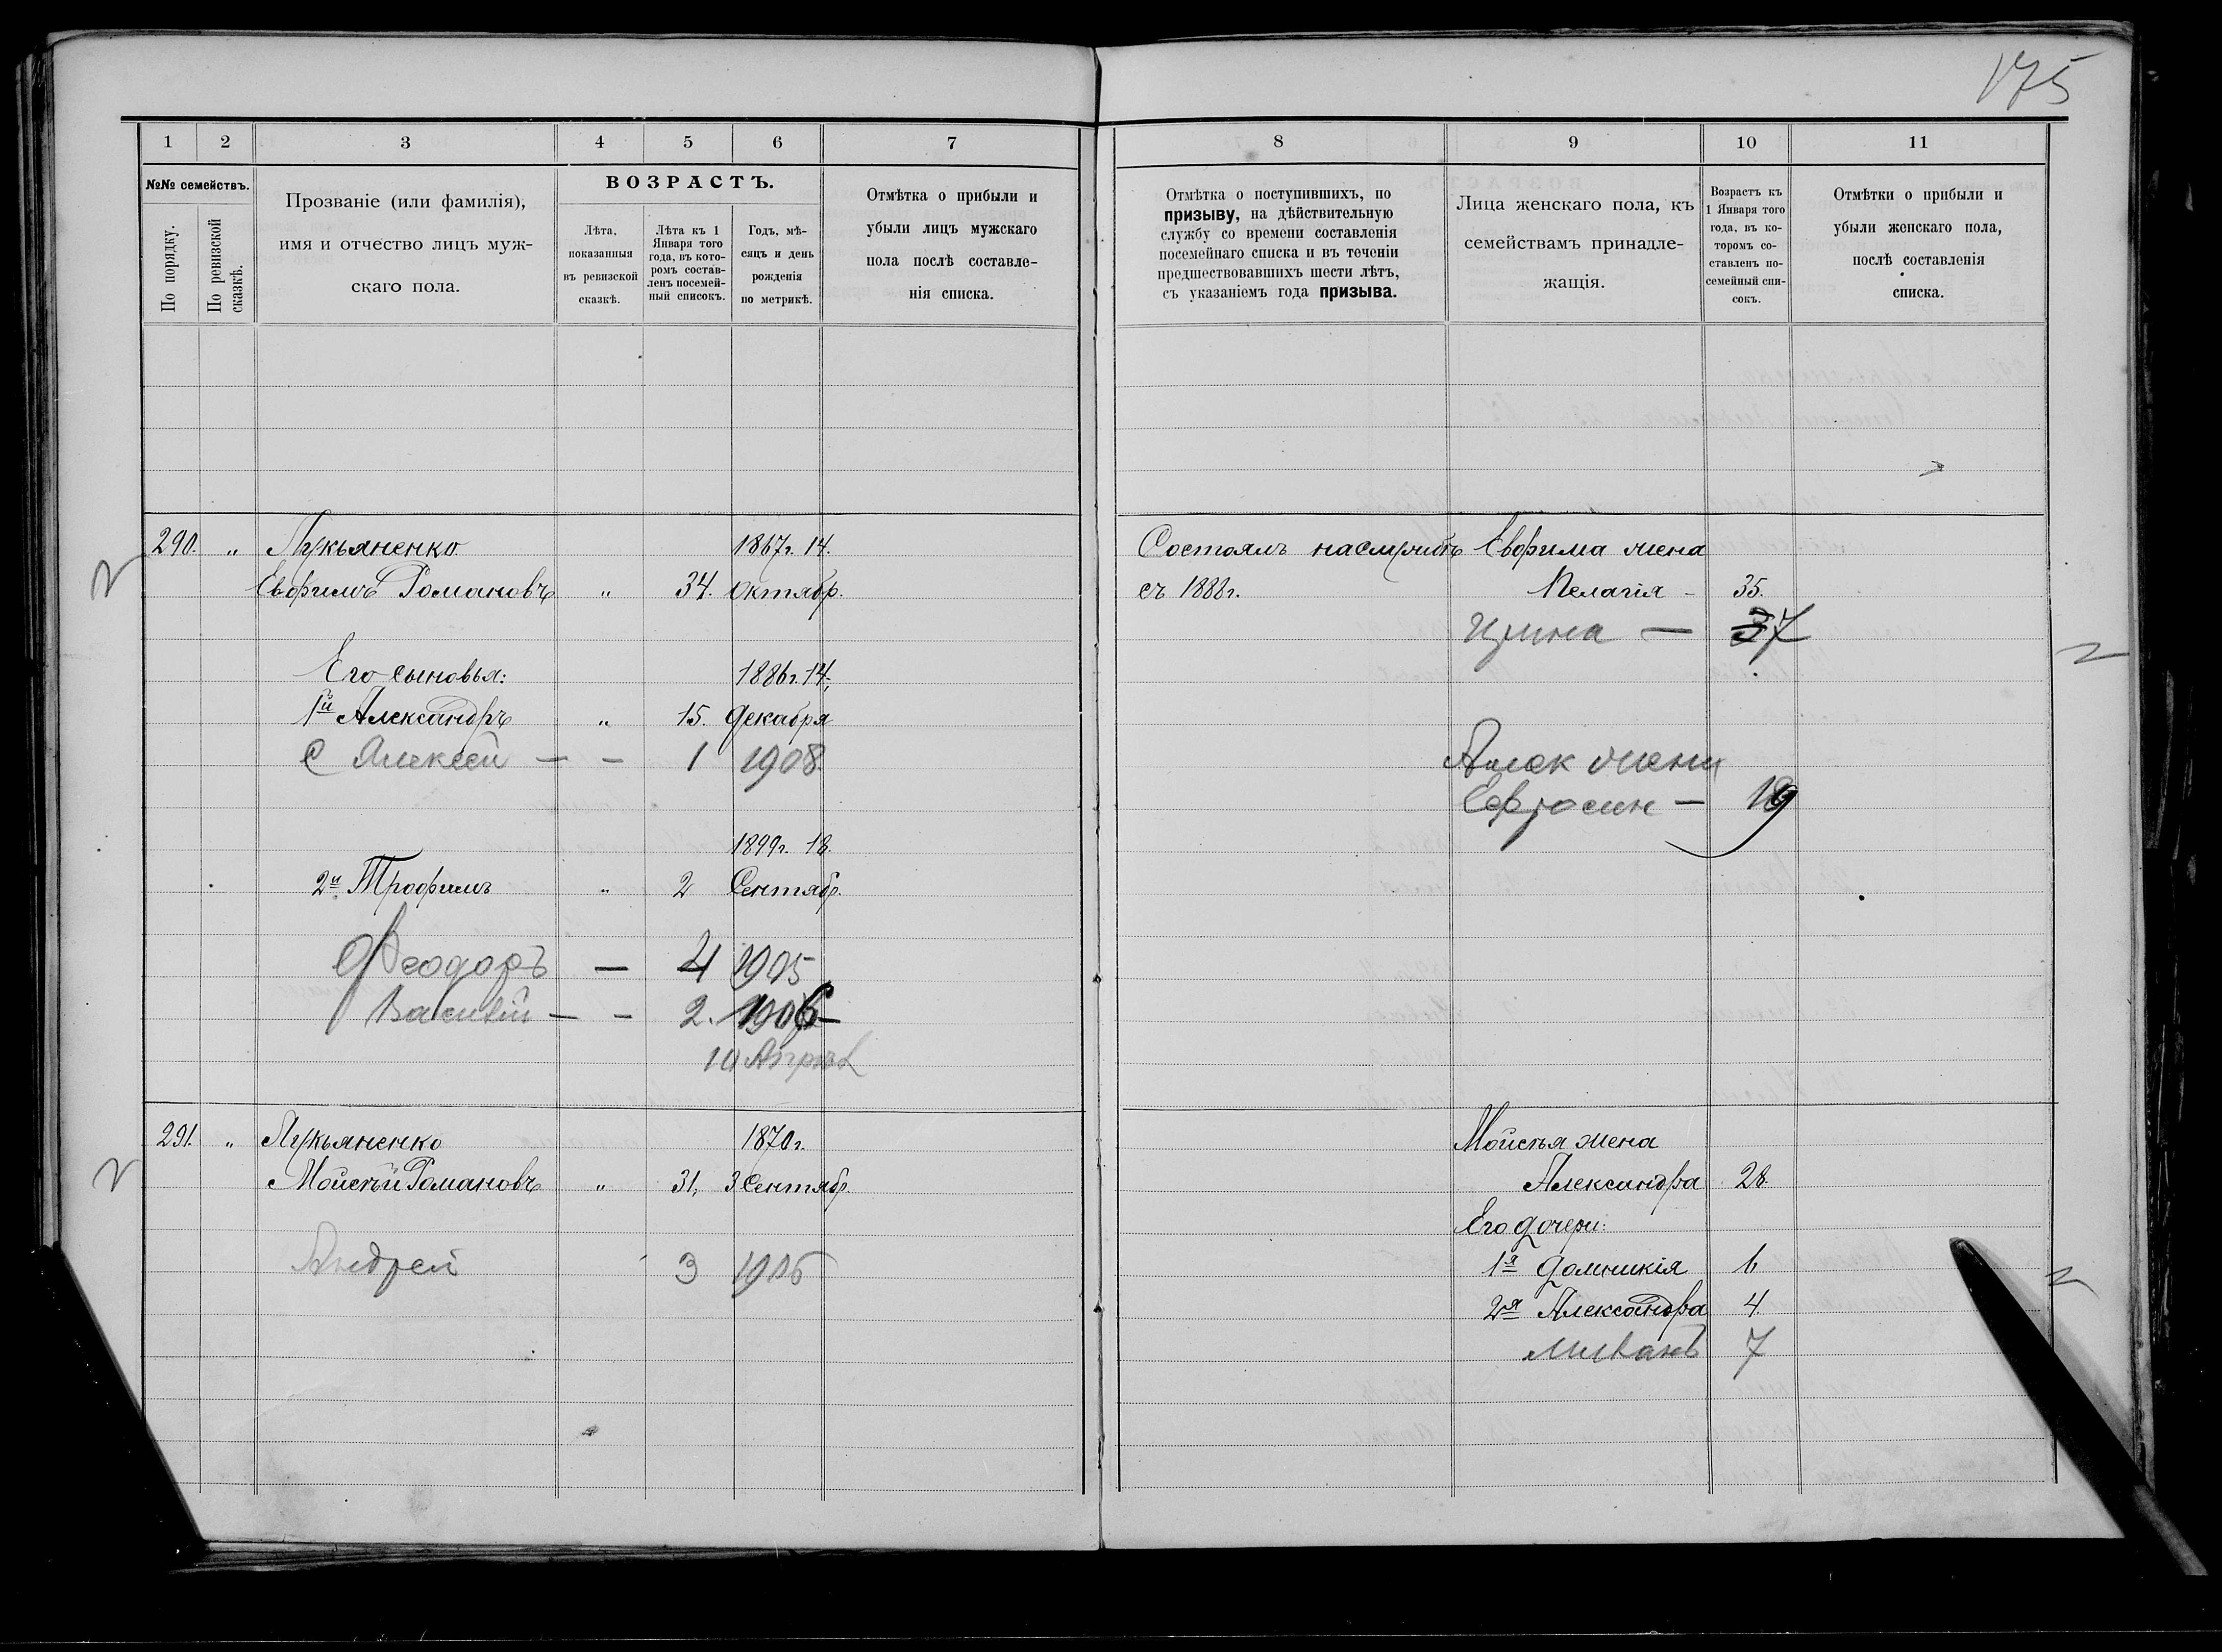 175
1 2 3 4 5 6 7
№№ семействъ.
По порядку.
По ревизской сказкѣ.
Прозваніе (или фамилія),
имя и отчество лицъ муж-
скаго пола.
ВОЗРАСТЪ.
Лѣта,
показанныя
въ ревизской
сказкѣ.
Лѣта къ 1
Января того
года, въ кото-
ромъ состав-
ленъ посемей-
ный списокъ.
Годъ, мѣ-
сяцъ и день
рожденія
по метрикѣ.
Отмѣтка о прибыли и
убыли лицъ мужскаго
пола послѣ составле-
нія списка.
290. " Лукьяненко 1867г. 14.
Евфимъ Романовъ " 34. Октябр.
Его сыновья: 1886г. 14.
1й Александръ " 15. Декабря
с Алексѣй — — 1 1908.
1899г. 18.
2й Трофимъ " 2 Сентябр.
Феодоръ — 4 1905
Василій — — 2. 1906 —
10 Апрѣл
291. " Лукьяненко 1870г.
Мойсѣй Романовъ " 31, 3 Сентябр.
Андрей 3 1906
8 9 10 11
Отмѣтка о поступившихъ, по
призыву, на дѣйствительную
службу со времени составленія
посемейнаго списка и въ теченіи
предшествовавшихъ шести лѣтъ,
съ указаніемъ года призыва.
Лица женскаго пола, къ
семействамъ принадле-
жащія.
Возрастъ къ
1 Января того
года, въ ко-
торомъ со-
ставленъ по-
семейный спи-
сокъ.
Отмѣтки о прибыли и
убыли женскаго пола,
послѣ составленія
списка.
Состоялъ на службѣ Евфима жена
съ 1888г. Пелагія - 35.
— 37
Алек жена
— 19
Мойсѣя жена
Александра 28.
Его дочери:
1я Домникія 6
2я Александра 4.
7